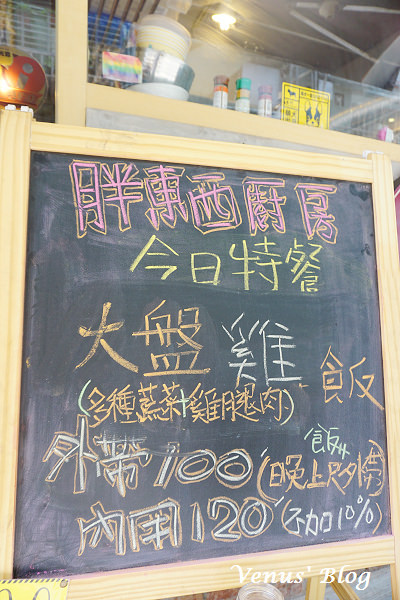 胖東西廚房
今日特餐
大盤雞飯
(多種蔬菜+雞腿肉)
外帶100(晚上只外帶)
內用120(不加10%)
Venus' Blog